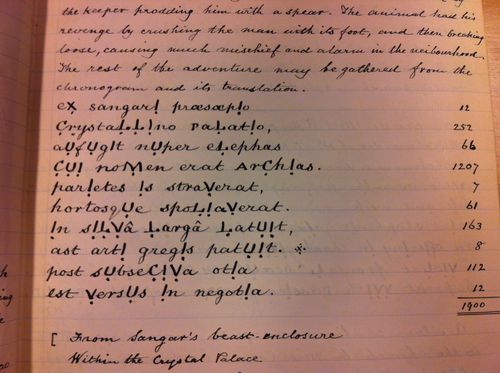 the keeper prodding him with a spear. The animal had his
revenge by crushing the man with its foot, and then breaking
loose, causing much mischief and alarm in the neibourhood.
The rest of the adventure may be gathered from the
chronogram and its translation.
eX sangarI præsæpIo 12
CrystaLLIno paLatIo, 252
aUfUgIt nUper eLephas 66
CUI noMen erat ArChIas. 1207
parIetes Is straVerat, 7
hortosqUe spoLIaVerat. 61
In sILVâ Largâ LatUIt, 163
ast artI gregIs patUIt. ※ 8
post sUbseCIVa otIa 112
est VersUs In negotIa. 12
1900
[ From Sangar's beast-enclosure
Within the Crystal Palace